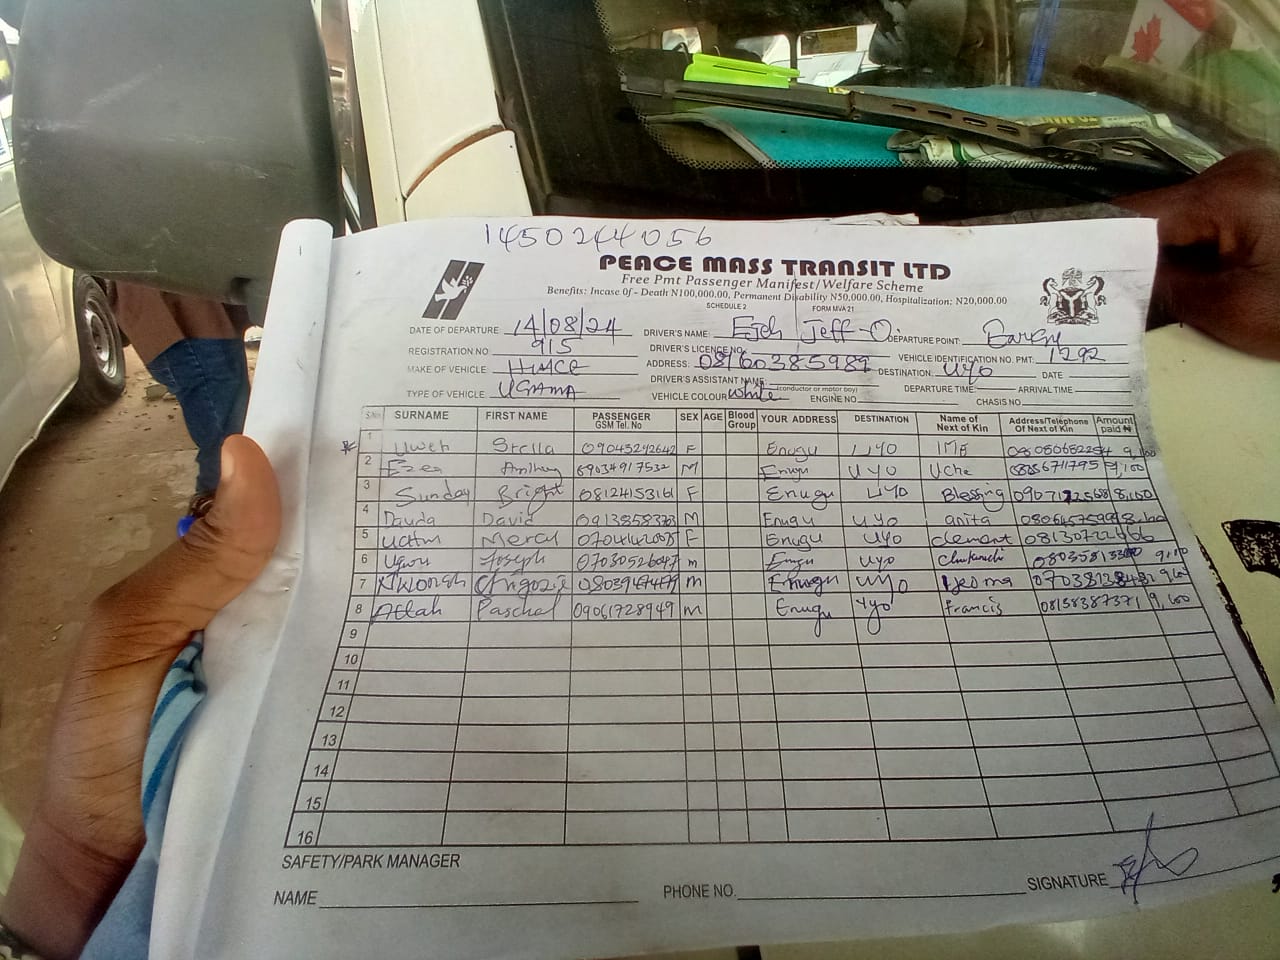 1450244056
PEACE MASS TRANSIT LTD
Free Pmt Passenger Manifest/Welfare Scheme
Benefits: Incase Of - Death N100,000.00, Permanent Disability N50,000.00, Hospitalization: N20,000.00
SCHEDULE 2 FORM MVA 21
DATE OF DEPARTURE: 14/08/24 DRIVER'S NAME: Ejeh Jeff-O DEPARTURE POINT:
REGISTRATION NO. 915 DRIVER'S LICENCE NO. VEHICLE IDENTIFICATION NO. PMT: 1292
MAKE OF VEHICLE HIACE ADDRESS: 08160385989 DESTINATION: Uyo DATE
DRIVER'S ASSISTANT NAME: (conductor or motor boy) DEPARTURE TIME: ARRIVAL TIME:
TYPE OF VEHICLE VEHICLE COLOUR white ENGINE NO CHASIS NO
S/No SURNAME FIRST NAME PASSENGER GSM Tel. No SEX AGE Blood Group YOUR ADDRESS DESTINATION Name of Next of Kin Address/Telephone Of Next of Kin Amount paid ₦
1 Uweh Stella 09045292642 F Enugu UYO IME 9,100
2 Ezea Anthony 09034917532 M Enugu UYO Uche 9,100
3 Sunday Bright F Enugu UYO Blessing
4 Dauda David M Enugu UYO anita
5 Mercy F Enugu UYO clement
6 Ugwu Joseph 07030526047 m Enugu UYO 9,100
7 m Enugu UYO Ijeoma
8 Attah Paschal 09061728949 M Enugu Uyo Francis 08158387371 9,100
9
10
11
12
13
14
15
16
SAFETY/PARK MANAGER
NAME PHONE NO. SIGNATURE